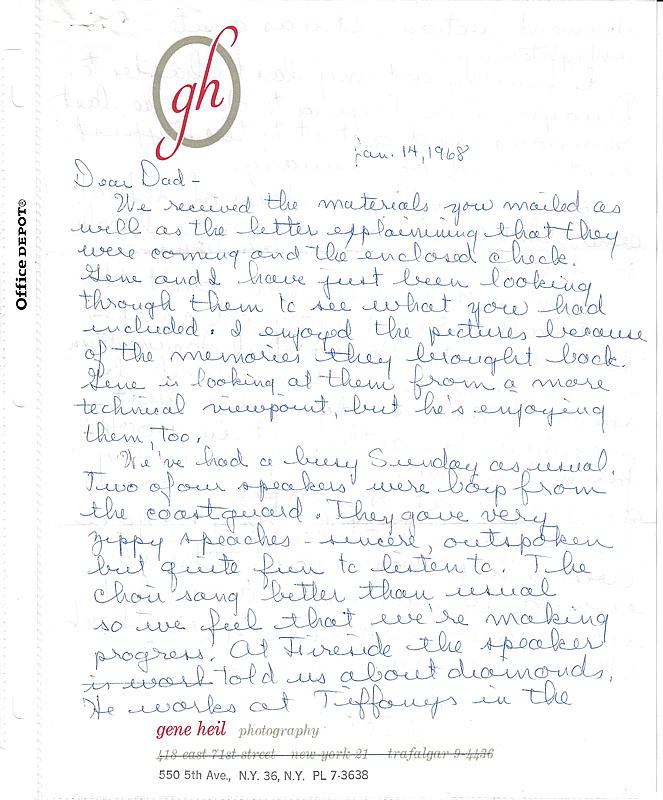 Office DEPOT®
gh
jan. 14, 1968
Dear Dad -
We received the materials you mailed as
well as the letter explainining that they
were coming and the enclosed check.
Gene and I have just been looking
through them to see what you had
included. I enjoyed the pictures because
of the memories they brought back.
Gene is looking at them from a more
technical viewpoint, but he's enjoying
them, too.
We've had a busy Sunday as usual.
Two of our speakers were boys from
the coastguard. They gave very
zippy speaches - sincere, outspoken
but quite fun to listen to. The
choir sang better than usual
so we feel that we're making
progress. At Fireside the speaker
is work told us about diamonds.
He works at Tiffanys in the
gene heil photography
418 east 71st street new york 21 trafalgar 9-4436
550 5th Ave., N.Y. 36, N.Y. PL 7-3638